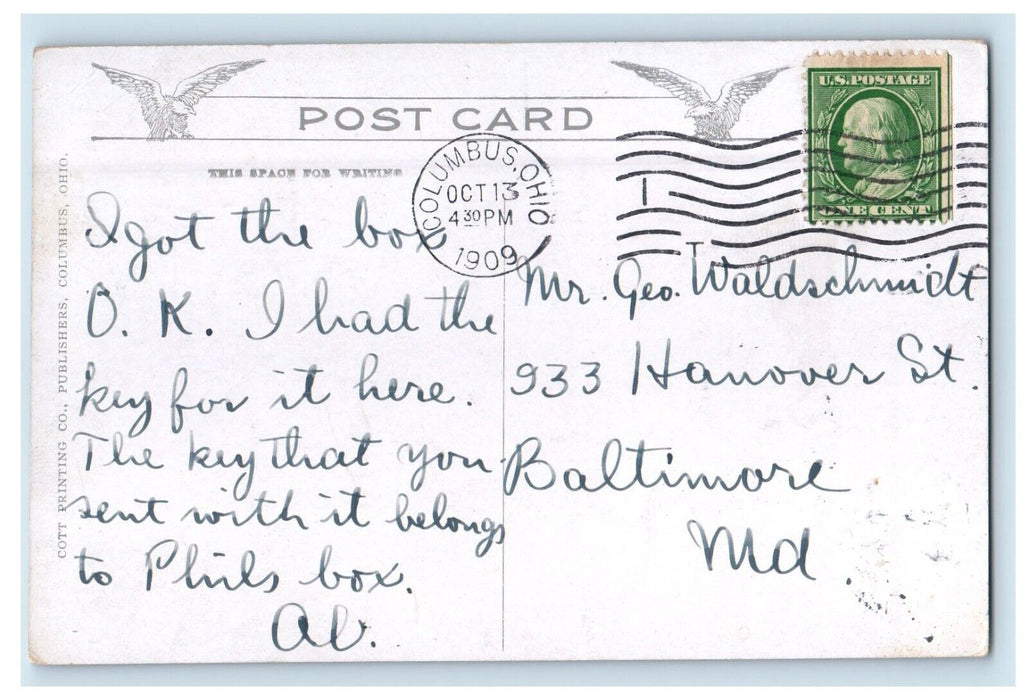 POST CARD
THIS SPACE FOR WRITING
COLUMBUS, OHIO
OCT 13
4 30 PM
1909
1
T
U.S. POSTAGE
ONE CENT
I got the box
O. K. I had the
key for it here.
The key that you
sent with it belongs
to Phils box.
Al.
Mr. Geo. Waldschmidt
933 Hanover St.
Baltimore
Md.
COTT PRINTING CO., PUBLISHERS, COLUMBUS, OHIO.